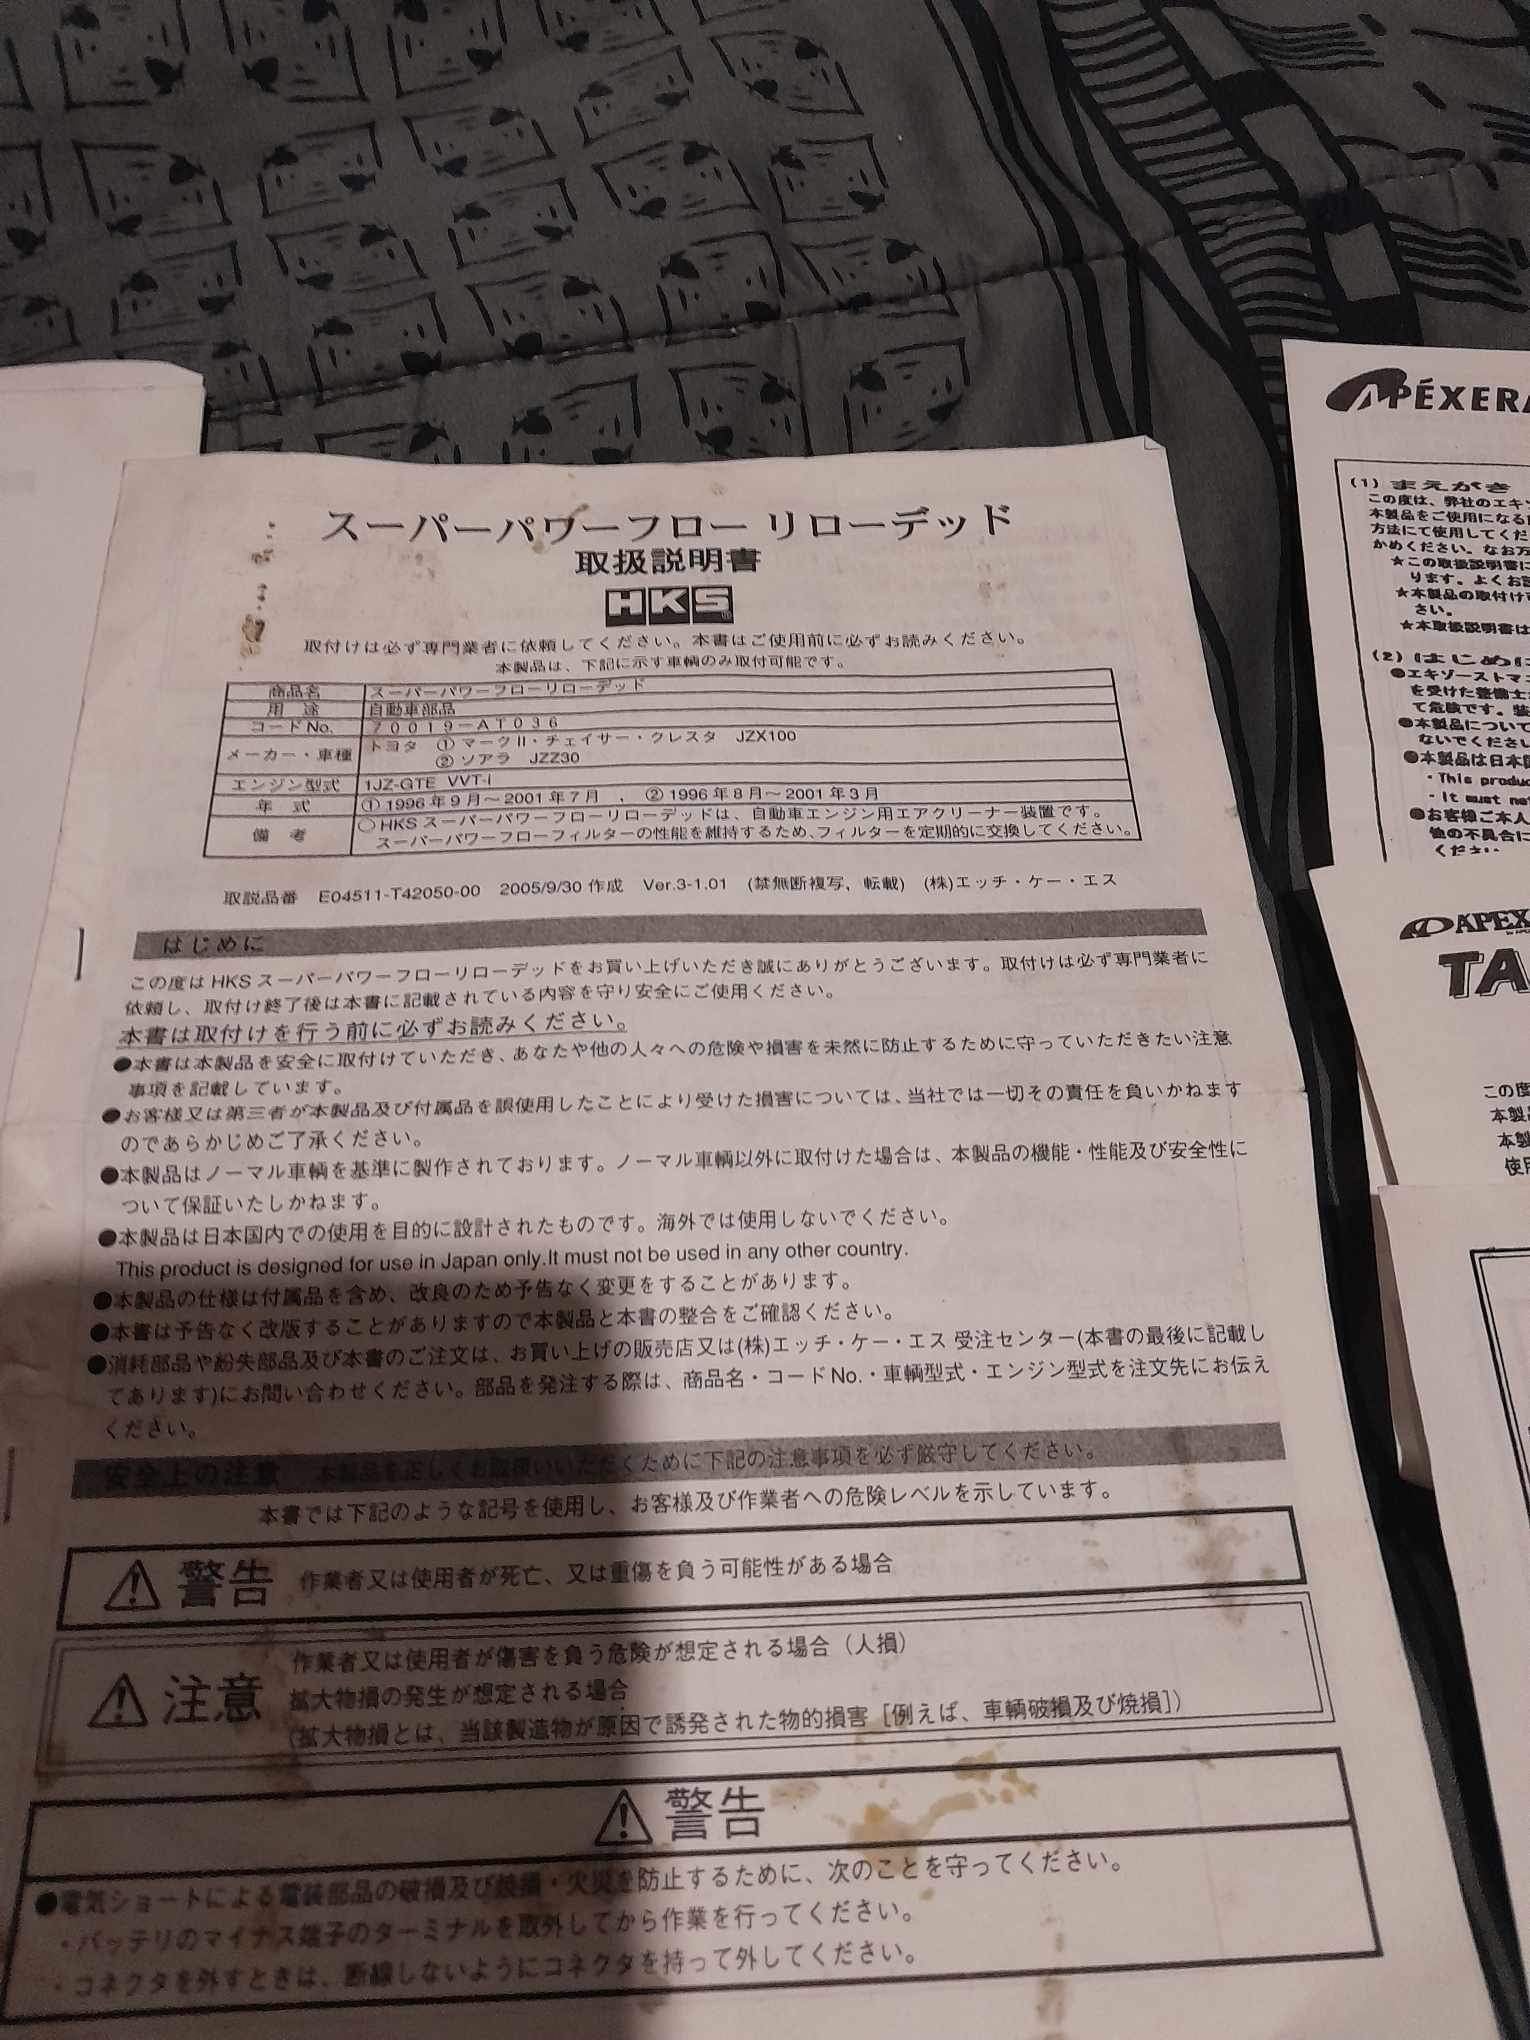 スーパーパワーフロー リローデッド
取扱説明書
HKS
取付けは必ず専門業者に依頼してください。本書はご使用前に必ずお読みください。
本製品は、下記に示す車輌のみ取付可能です。
商品名 スーパーパワーフローリローデッド
用 途 自動車部品
コードNo. 70019-AT036
メーカー・車種 トヨタ ① マークⅡ・チェイサー・クレスタ JZX100
② ソアラ JZZ30
エンジン型式 1JZ-GTE VVT-i
年 式 ① 1996年9月～2001年7月 , ② 1996年8月～2001年3月
備 考 ○HKSスーパーパワーフローリローデッドは、自動車エンジン用エアクリーナー装置です。
スーパーパワーフローフィルターの性能を維持するため、フィルターを定期的に交換してください。
取説品番 E04511-T42050-00 2005/9/30作成 Ver.3-1.01 (禁無断複写, 転載) (株)エッチ・ケー・エス
はじめに
この度はHKSスーパーパワーフローリローデッドをお買い上げいただき誠にありがとうございます。取付けは必ず専門業者に
依頼し、取付け終了後は本書に記載されている内容を守り安全にご使用ください。
本書は取付けを行う前に必ずお読みください。
●本書は本製品を安全に取付けていただき、あなたや他の人々への危険や損害を未然に防止するために守っていただきたい注意
事項を記載しています。
●お客様又は第三者が本製品及び付属品を誤使用したことにより受けた損害については、当社では一切その責任を負いかねます
のであらかじめご了承ください。
●本製品はノーマル車輌を基準に製作されております。ノーマル車輌以外に取付けた場合は、本製品の機能・性能及び安全性に
ついて保証いたしかねます。
●本製品は日本国内での使用を目的に設計されたものです。海外では使用しないでください。
This product is designed for use in Japan only.It must not be used in any other country.
●本製品の仕様は付属品を含め、改良のため予告なく変更をすることがあります。
●本書は予告なく改版することがありますので本製品と本書の整合をご確認ください。
●消耗部品や紛失部品及び本書のご注文は、お買い上げの販売店又は(株)エッチ・ケー・エス 受注センター(本書の最後に記載し
てあります)にお問い合わせください。部品を発注する際は、商品名・コードNo.・車輌型式・エンジン型式を注文先にお伝え
ください。
安全上の注意 本製品を正しくお取扱いいただくために下記の注意事項を必ず厳守してください。
本書では下記のような記号を使用し、お客様及び作業者への危険レベルを示しています。
⚠警告 作業者又は使用者が死亡、又は重傷を負う可能性がある場合
⚠注意 作業者又は使用者が傷害を負う危険が想定される場合（人損）
拡大物損の発生が想定される場合
(拡大物損とは、当該製造物が原因で誘発された物的損害［例えば、車輌破損及び焼損］)
⚠警告
●電気ショートによる電装部品の破損及び焼損・火災を防止するために、次のことを守ってください。
・バッテリのマイナス端子のターミナルを取外してから作業を行ってください。
・コネクタを外すときは、断線しないようにコネクタを持って外してください。
APÉXERA
(1) まえがき
この度は、弊社のエキ
本製品をご使用になる
方法にて使用してくだ
かめください。なお万
★この取扱説明書に
ります。よくお
★本製品の取付け
さい。
★本取扱説明書は
(2) はじめに
●エキゾーストマニ
を受けた整備士
て危険です。装
●本製品について
ないでください
●本製品は日本国
・This produc
・It must no
●お客様ご本人
他の不具合に
ください
APEX
TA
この度
本製品
本製
使用